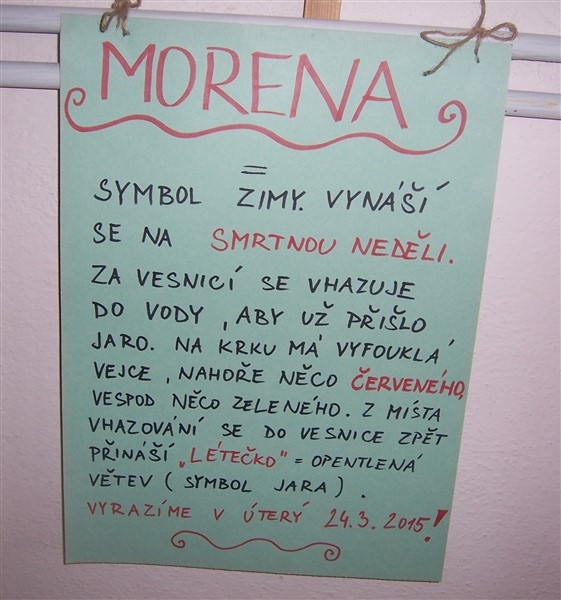 MORENA
=
SYMBOL ZIMY. VYNÁŠÍ
SE NA SMRTNOU NEDĚLI.
ZA VESNICÍ SE VHAZUJE
DO VODY, ABY UŽ PŘIŠLO
JARO. NA KRKU MÁ VYFOUKLÁ
VEJCE, NAHOŘE NĚCO ČERVENÉHO,
VESPOD NĚCO ZELENÉHO. Z MÍSTA
VHAZOVÁNÍ SE DO VESNICE ZPĚT
PŘINÁŠÍ „LÉTEČKO" = OPENTLENÁ
VĚTEV (SYMBOL JARA).
VYRAZÍME V ÚTERÝ 24.3.2015!